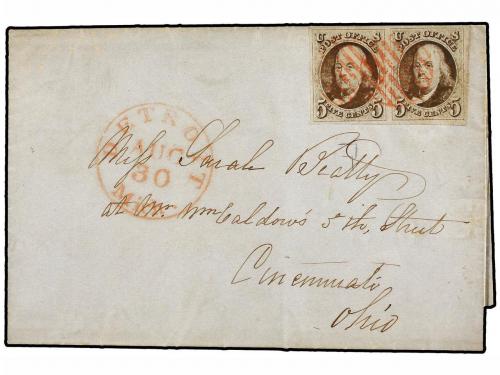 U S U S
POST OFFICE POST OFFICE
5 FIVE CENTS 5 5 FIVE CENTS 5
DETROIT
AUG
30
Miss Sarah Beatty
at Mr. Wm Caldow's 5th, Street
Cincinnati
Ohio